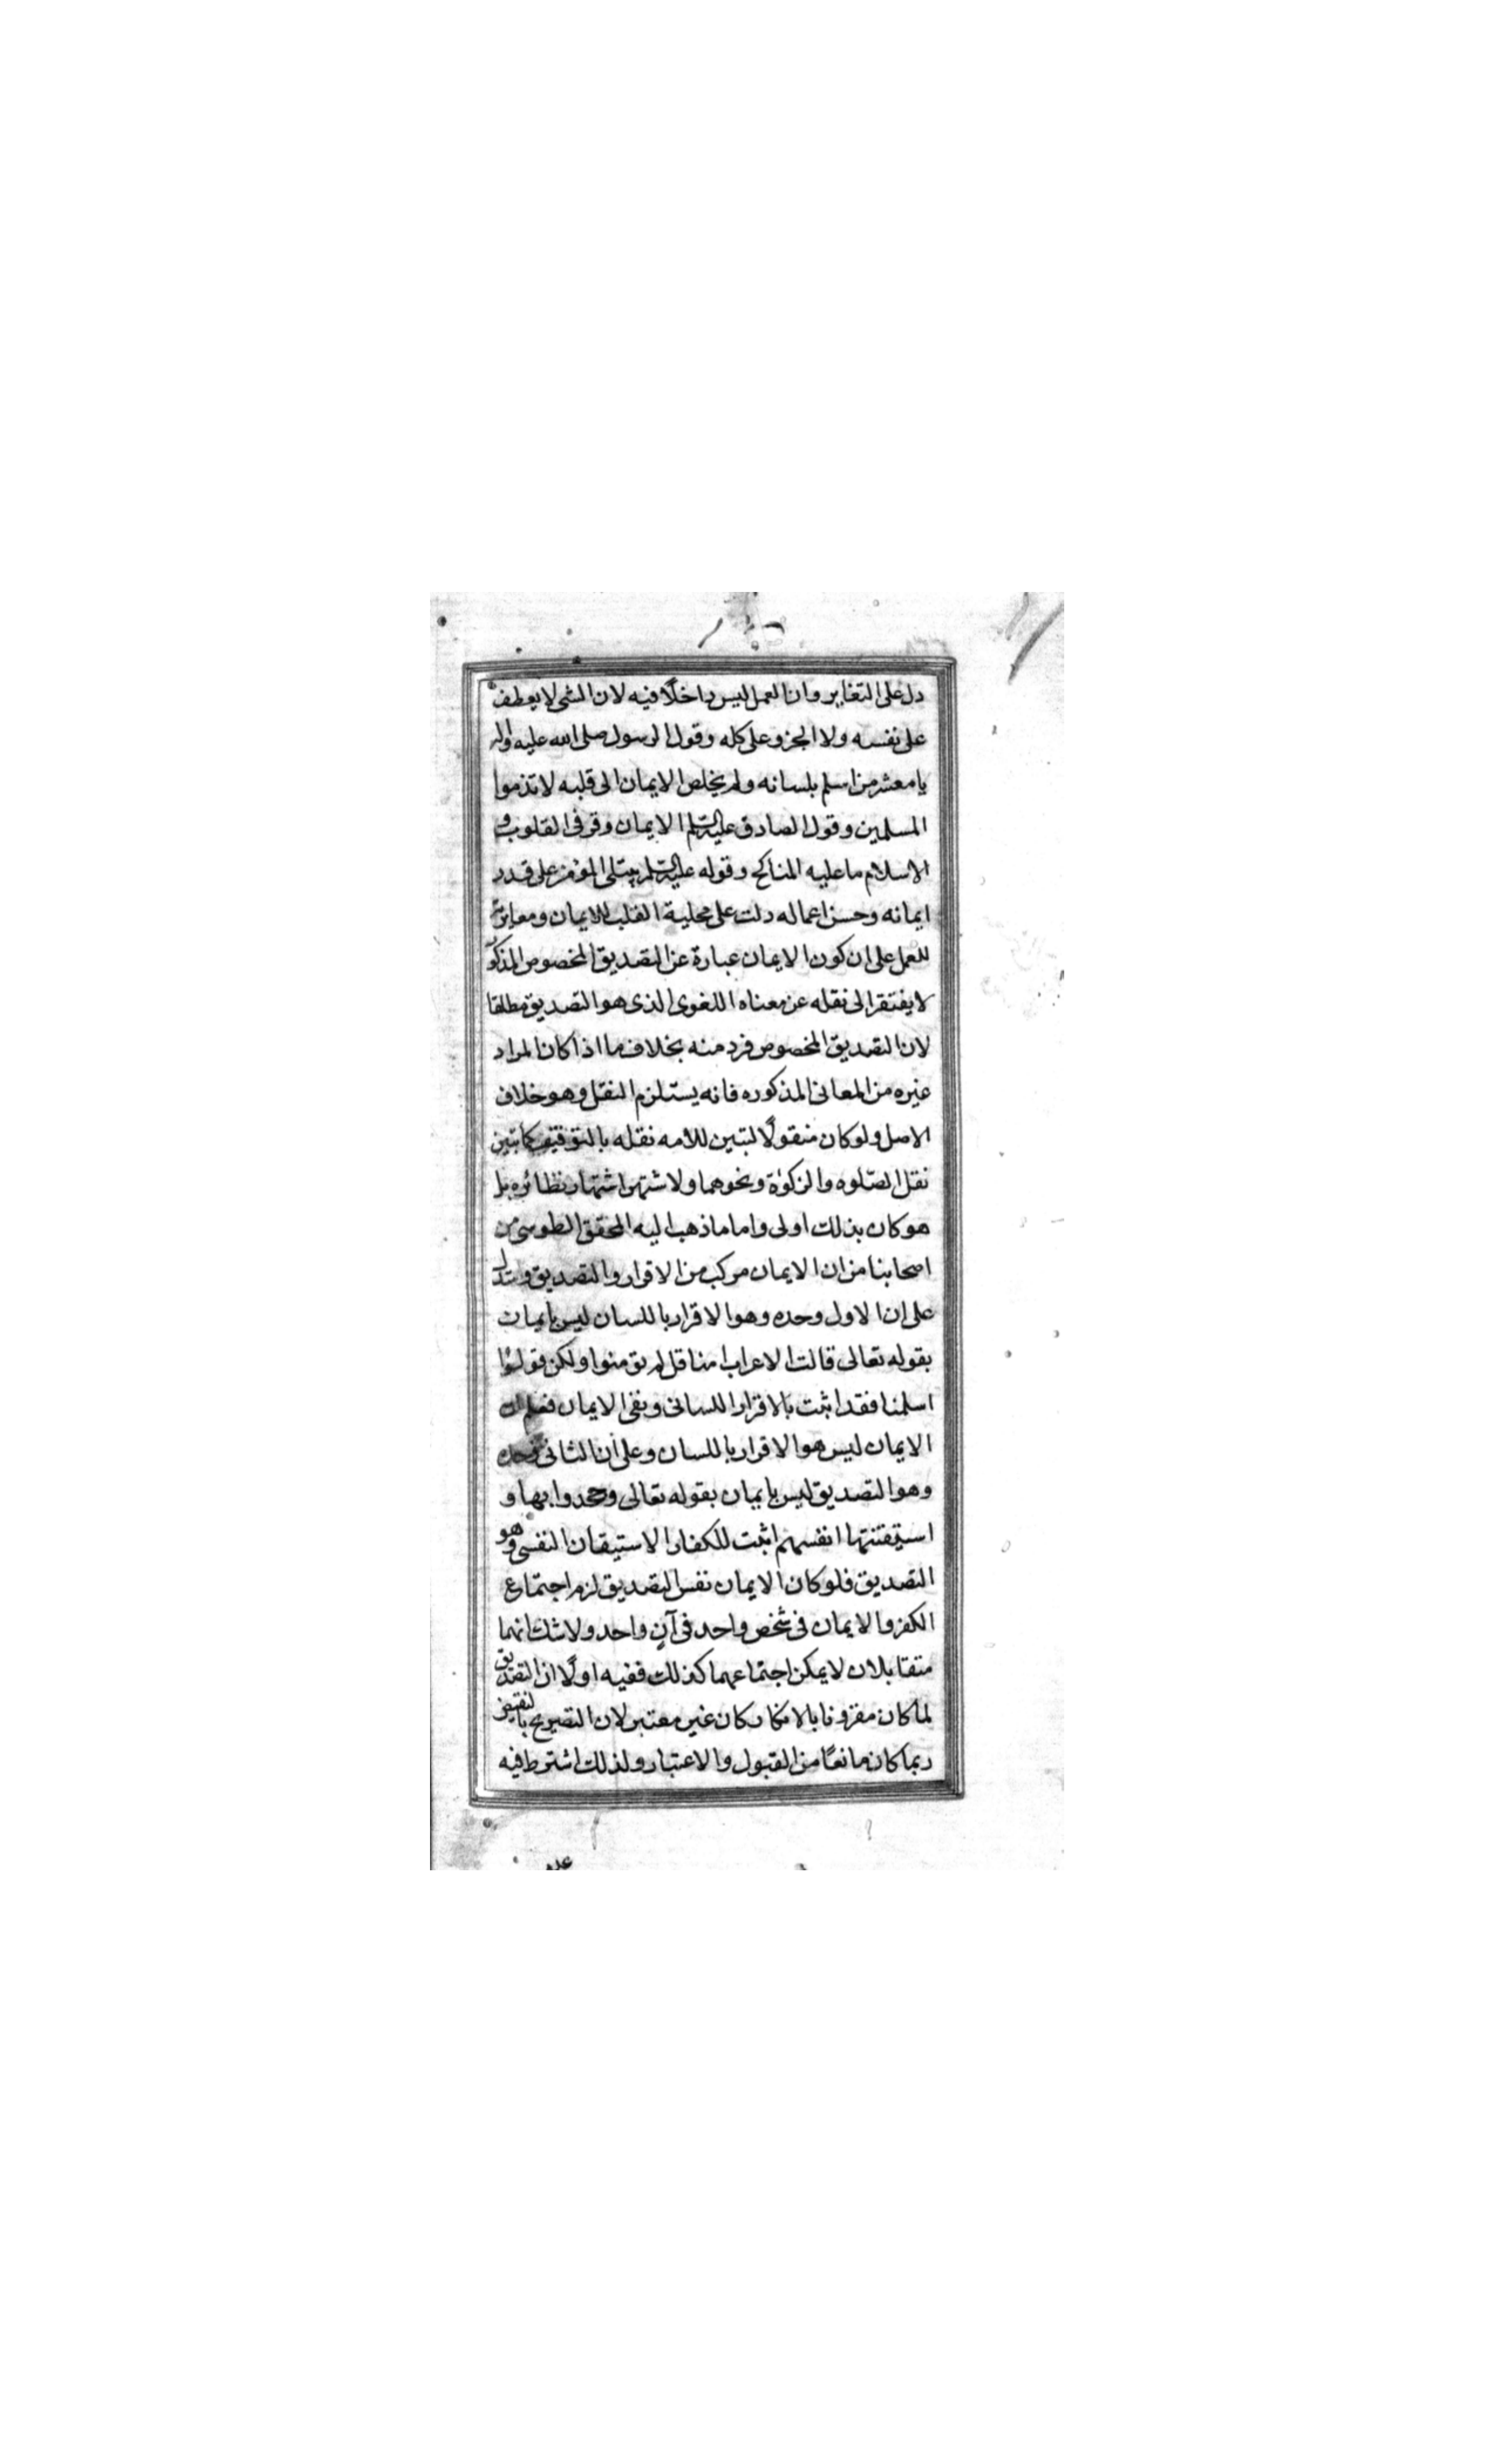 دل على التغاير وان العمل ليس داخلًا فيه لان الشى لا يعطف
على نفسه ولا الجزو على كله وقول الرسول صلى الله عليه واله
يا معشر من اسلم بلسانه ولم يخلص الايمان الى قلبه لا تذموا
المسلمين وقول الصادق عليه السلم الايمان وقر فى القلوب و
الاسلام ما عليه المناكح وقوله عليه السلم يبتلى المؤمن على قدر
ايمانه وحسن اعماله دلت على محلية القلب للايمان ومغايرته
للعمل على ان كون الايمان عبارة عن التصديق المخصوص المذكور
لا يفتقر الى نقله عن معناه اللغوى الذى هو التصديق مطلقا
لان التصديق المخصوص فرد منه بخلاف ما اذا كان المراد
غيره من المعانى المذكوره فانه يستلزم النقل وهو خلاف
الاصل ولو كان منقولًا لتبين للامه نقله بالتوقيف كما تبين
نقل الصّلوه والزكوٰة ونحوهما ولاشتهر اشتهار نظائره بل
هو كان بذلك اولى واما ما ذهب اليه المحقق الطوسى من
اصحابنا من ان الايمان مركب من الاقرار والتصديق واستدل
على ان الاول وحده وهو الاقرار باللسان ليس بايمان
بقوله تعالى قالت الاعراب امنا قل لم تؤمنوا ولكن قولوا
اسلمنا فقد اثبت بالاقرار اللسانى ونفى الايمان فعلم ان
الايمان ليس هو الاقرار باللسان وعلى أن الثانى وحده
وهو التصديق ليس بايمان بقوله تعالى وجحدوا بها و
استيقنتها انفسهم اثبت للكفار الاستيقان النفسى وهو
التصديق فلو كان الايمان نفس التصديق لزم اجتماع
الكفر والايمان فى شخص واحد فى آنٍ واحد ولا شك انهما
متقابلان لا يمكن اجتماعهما كذلك ففيه اولًا ان التصديق
لما كان مقرونا بالانكار كان غير معتبر لان التصريح بالنقيض
ربما كان مانعًا من القبول والاعتبار ولذلك اشترط فيه